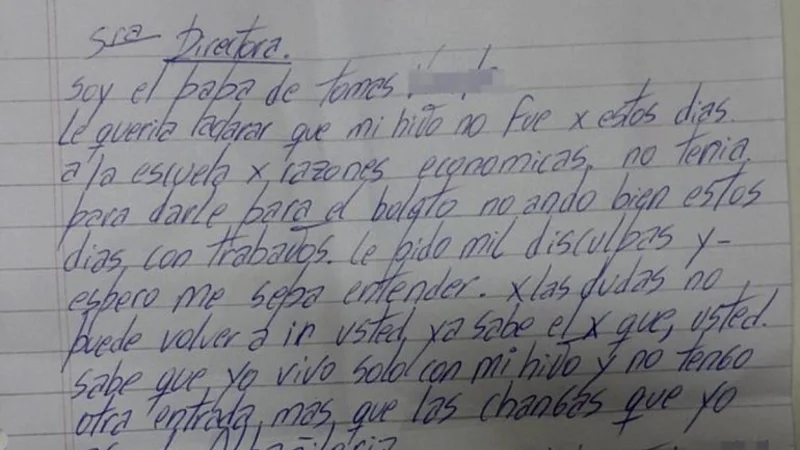 Sra Directora.
Soy el papa de tomas
Le queria aclarar que mi hiño no fue x estos dias.
a la escuela x razones economicas. no tenia
para darle para el boleto no ando bien estos
dias, con trabaños. Le pido mil disculpas y-
espero me sepa entender. x las dudas no
puede volver a ir usted, ya sabe el x que, usted.
sabe que, yo vivo solo con mi hiño y no tengo
otra entrada, mas, que las changas que yo
Albañileria